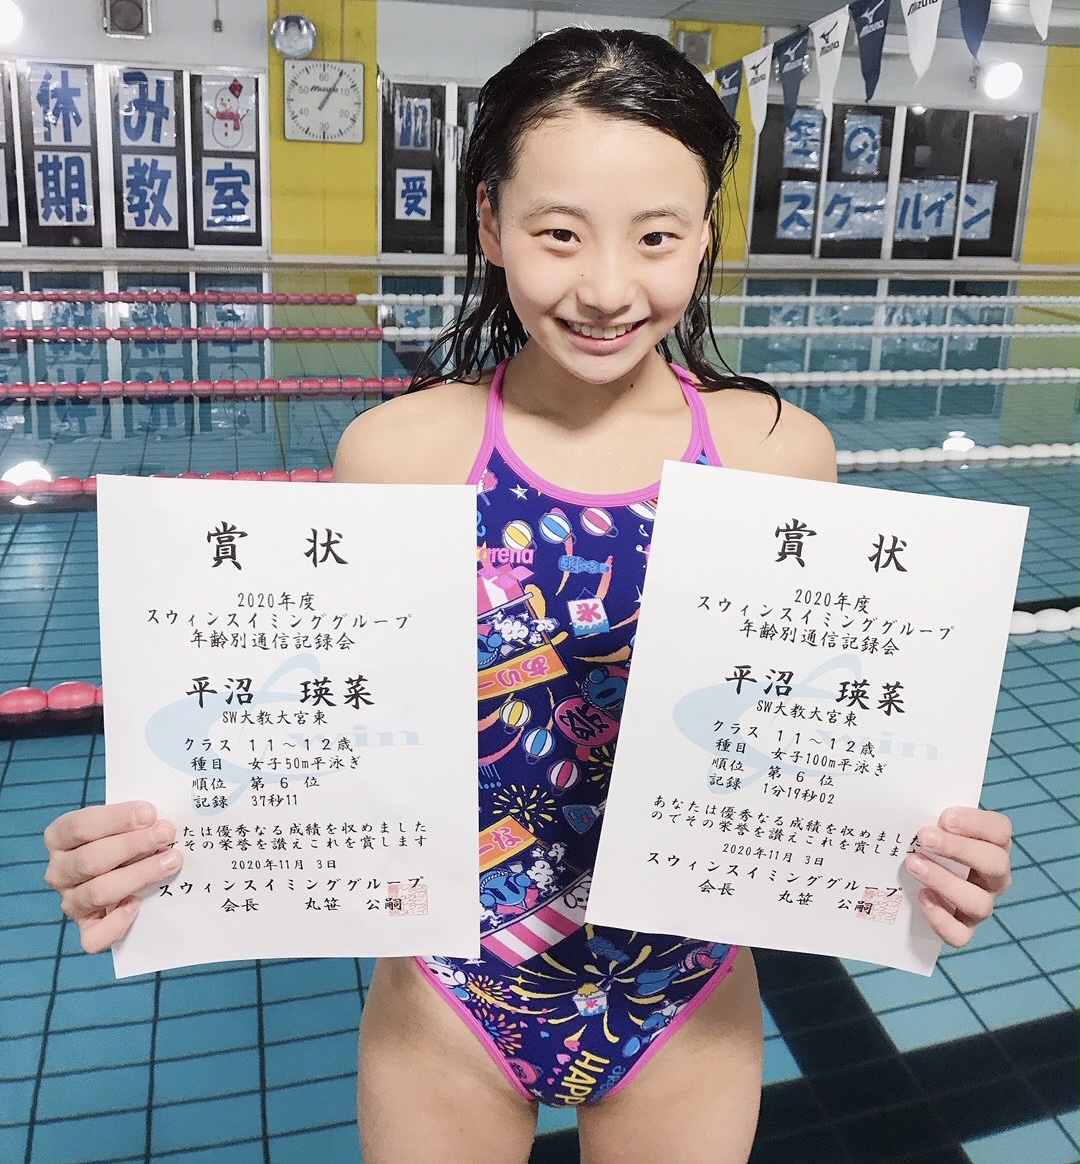 休み
期教室
60
50
10
40
20
30
mizuno
受
MIZUNO
MIZUNO
MIZUNO
MIZUNO
冬の
スクールイン
賞 状
2020年度
スウィンスイミンググループ
年齢別通信記録会
平沼 瑛菜
SW大教大宮東
クラス 11~12歳
種目 女子50m平泳ぎ
順位 第 6 位
記録 37秒11
たは優秀なる成績を収めました
でその栄誉を讃えこれを賞します
2020年11月 3日
スウィンスイミンググループ
会長 丸笹 公嗣
賞 状
2020年度
スウィンスイミンググループ
年齢別通信記録会
平沼 瑛菜
SW大教大宮東
クラス 11~12歳
種目 女子100m平泳ぎ
順位 第 6 位
記録 1分19秒02
あなたは優秀なる成績を収めました
のでその栄誉を讃えこれを賞しま
2020年11月 3日
スウィンスイミンググループ
会長 丸笹 公嗣
arena
氷
あり
祭
な
氷
HAPP